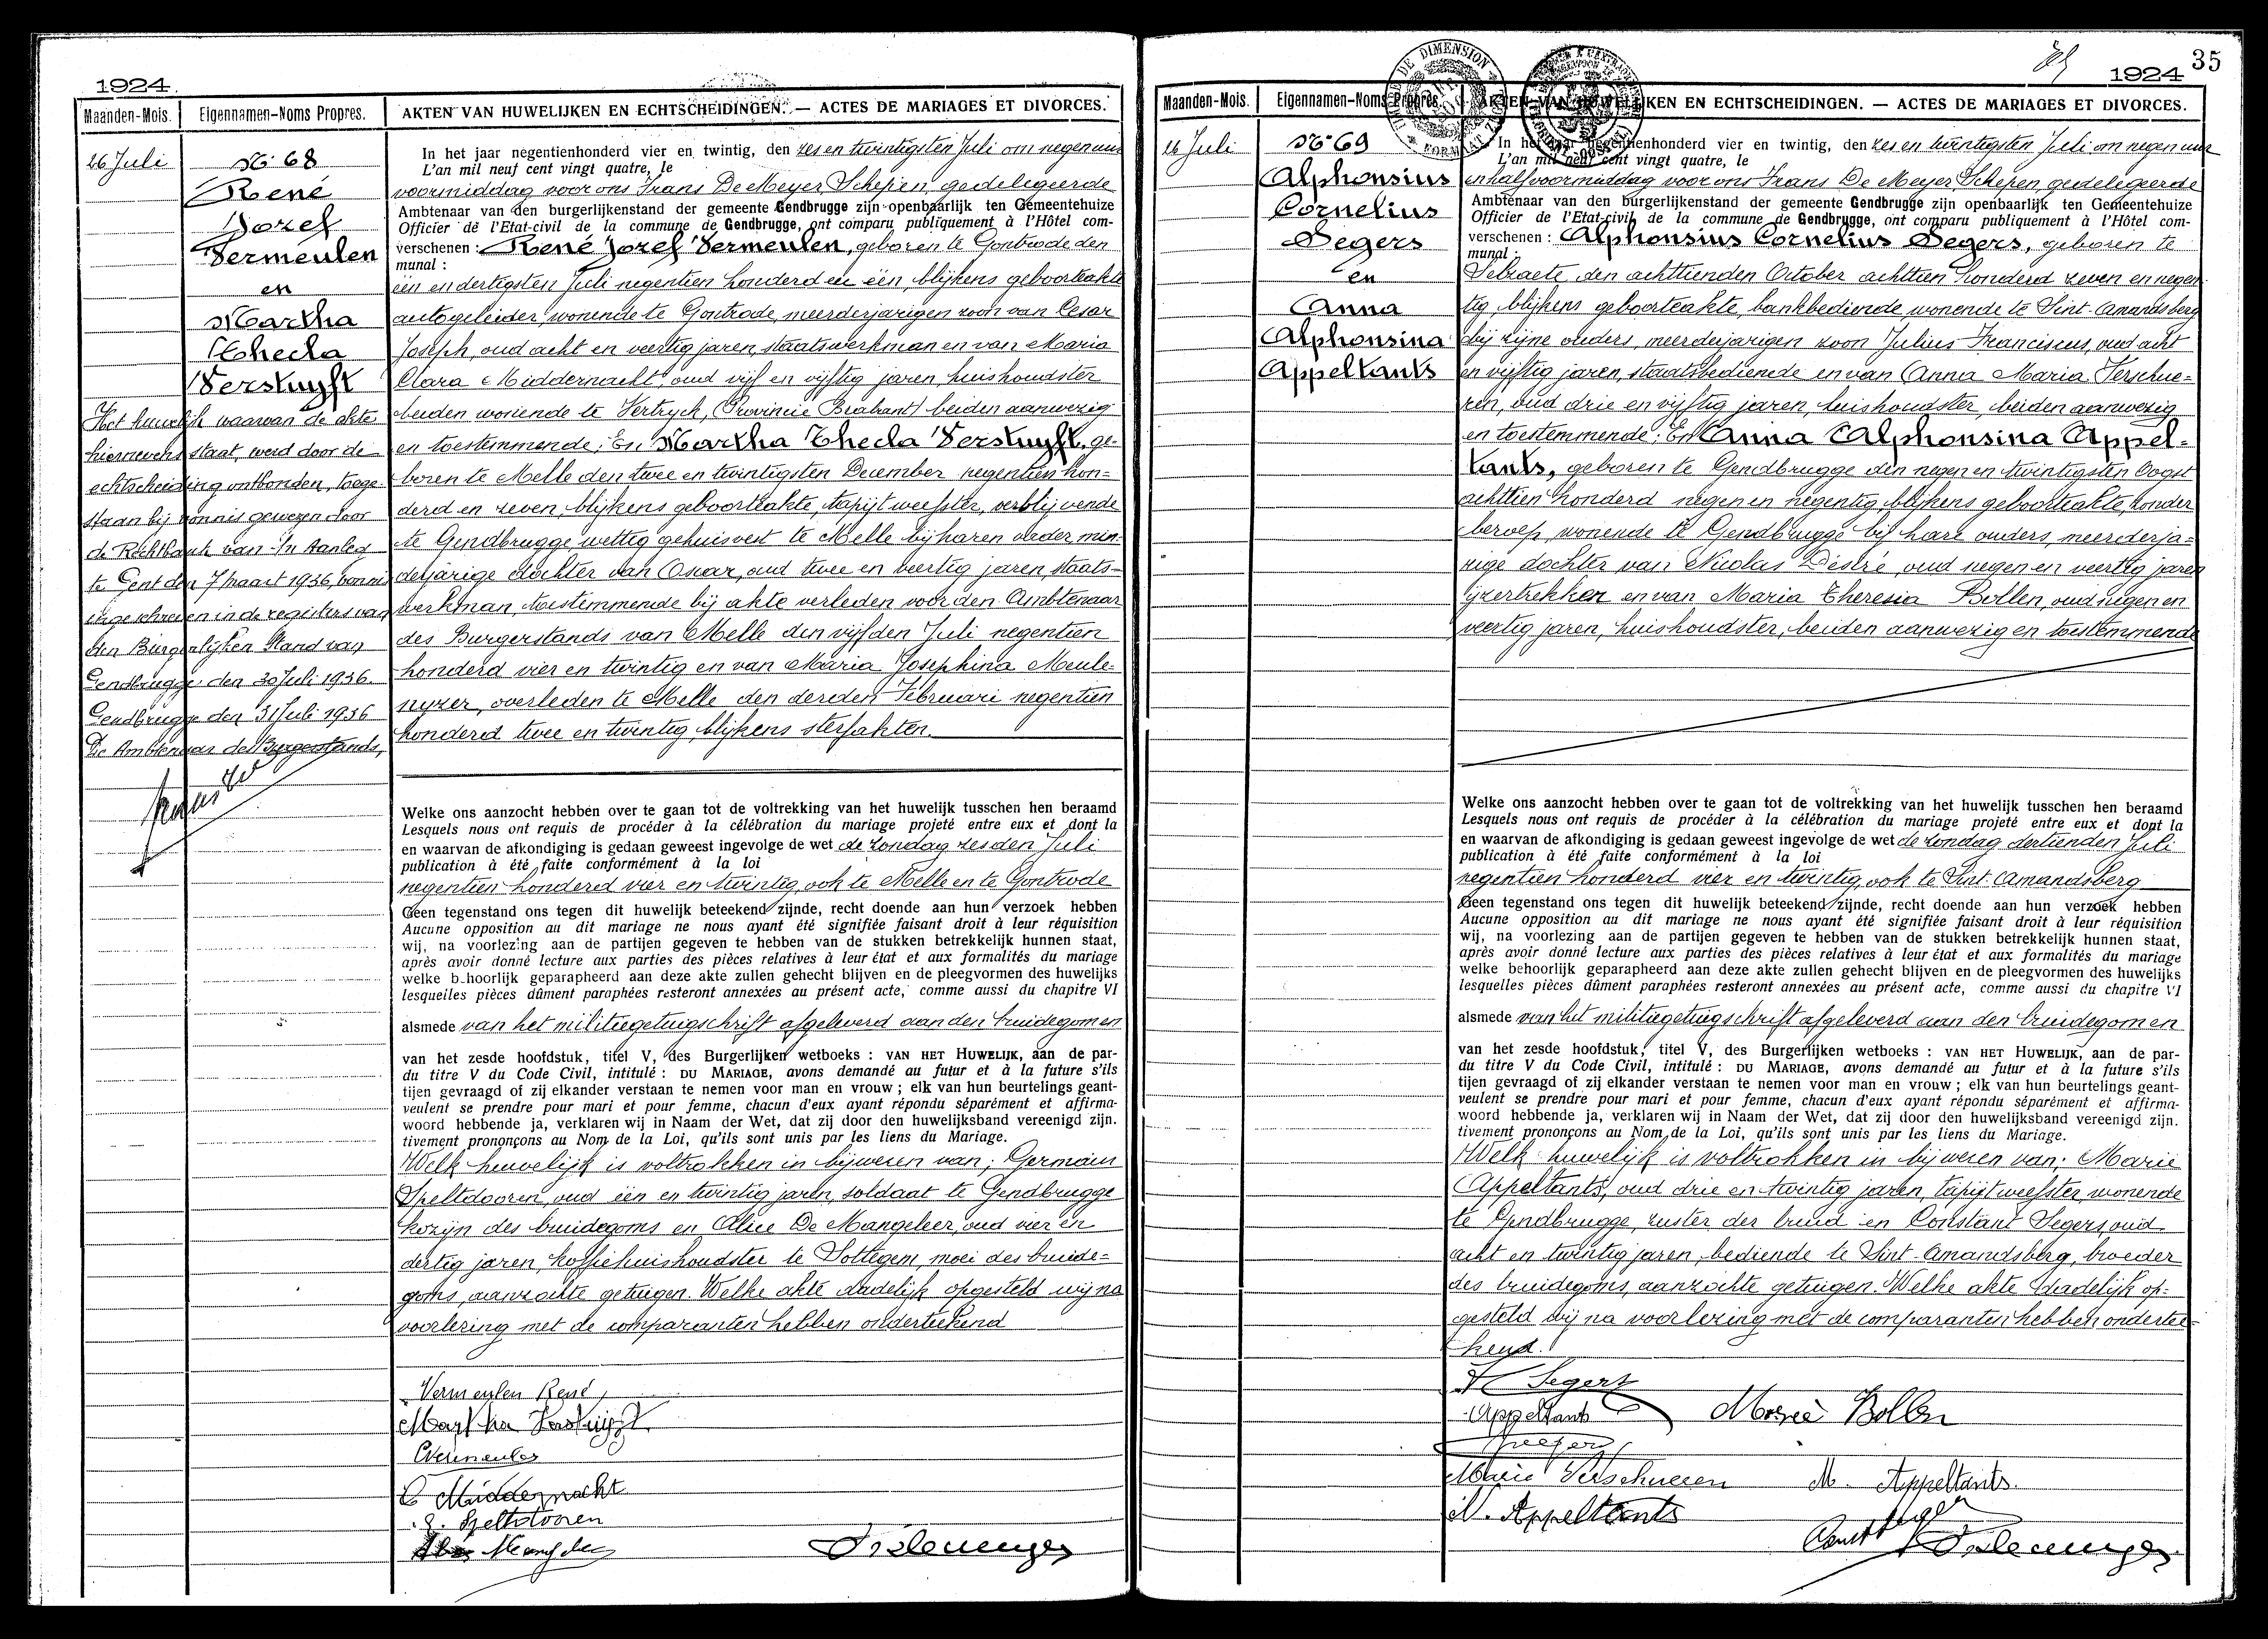 1924.
Maanden-Mois. Eigennamen-Noms Propres. AKTEN VAN HUWELIJKEN EN ECHTSCHEIDINGEN. — ACTES DE MARIAGES ET DIVORCES.
26 Juli
N° 68
René
Jozef
Vermeulen
en
Martha
Thecla
Verstuyft
Het huwelijk waarvan de akte
hiernevens staat, werd door de
echtscheiding ontbonden, toege-
staan bij vonnis gewezen door
de Rechtbank van 1n Aanleg
te Gent den 7 maart 1936, vonnis
ingeschreven in de registers van
den Burgerlijken Stand van
Gendbrugge den 30 Juli 1936.
Gendbrugge den 31 Juli 1936
De Ambtenaar des Burgerstands,
In het jaar negentienhonderd vier en twintig, den zes en twintigsten Juli om negen uur
L'an mil neuf cent vingt quatre, le
voormiddag voor ons Frans De Meyer, Schepen, gedelegeerde
Ambtenaar van den burgerlijkenstand der gemeente Gendbrugge zijn openbaarlijk ten Gemeentehuize
Officier de l'Etat-civil de la commune de Gendbrugge, ont comparu publiquement à l'Hôtel com-
verschenen : René Jozef Vermeulen, geboren te Gontrode den
munal :
één en dertigsten Juli negentien honderd en één, blijkens geboorteakte
autogeleider, wonende te Gontrode, meerderjarigen zoon van Cesar
Joseph, oud acht en veertig jaren, staatswerkman en van Maria
Clara Middernacht, oud vijf en vijftig jaren, huishoudster
beiden wonende te Vertryck, (Provincie Brabant) beiden aanwezig
en toestemmende; En Martha Thecla Verstuyft, ge-
boren te Melle den twee en twintigsten December negentien hon-
derd en zeven, blijkens geboorteakte, tapijtweefster, verblijvende
te Gendbrugge, wettig gehuisvest te Melle bij haren vader, min-
derjarige dochter van Oscar, oud twee en veertig jaren, staats-
werkman, toestemmende bij akte verleden voor den Ambtenaar
des Burgerstands van Melle den vijfden Juli negentien
honderd vier en twintig en van Maria Josephina Meule-
nyzer, overleden te Melle den derden Februari negentien
honderd twee en twintig, blijkens sterfakten.
Welke ons aanzocht hebben over te gaan tot de voltrekking van het huwelijk tusschen hen beraamd
Lesquels nous ont requis de procéder à la célébration du mariage projeté entre eux et dont la
en waarvan de afkondiging is gedaan geweest ingevolge de wet de zondag zesden Juli
publication à été faite conformément à la loi
negentien honderd vier en twintig, ook te Melle en te Gontrode
Geen tegenstand ons tegen dit huwelijk beteekend zijnde, recht doende aan hun verzoek hebben
Aucune opposition au dit mariage ne nous ayant été signifiée faisant droit à leur réquisition
wij, na voorlezing aan de partijen gegeven te hebben van de stukken betrekkelijk hunnen staat,
après avoir donné lecture aux parties des pièces relatives à leur état et aux formalités du mariage
welke behoorlijk geparapheerd aan deze akte zullen gehecht blijven en de pleegvormen des huwelijks
lesquelles pièces dûment paraphées resteront annexées au présent acte, comme aussi du chapitre VI
alsmede van het militiegetuigschrift afgeleverd aan den bruidegom en
van het zesde hoofdstuk, titel V, des Burgerlijken wetboeks : VAN HET HUWELIJK, aan de par-
du titre V du Code Civil, intitulé : DU MARIAGE, avons demandé au futur et à la future s'ils
tijen gevraagd of zij elkander verstaan te nemen voor man en vrouw ; elk van hun beurtelings geant-
veulent se prendre pour mari et pour femme, chacun d'eux ayant répondu séparément et affirma-
woord hebbende ja, verklaren wij in Naam der Wet, dat zij door den huwelijksband vereenigd zijn.
tivement prononçons au Nom de la Loi, qu'ils sont unis par les liens du Mariage.
Welk huwelijk is voltrokken in bijwezen van; Germain
Speltdooren, oud één en twintig jaren, soldaat te Gendbrugge
kozijn des bruidegoms en Alice De Mangeleer, oud vier en
dertig jaren, koffiehuishoudster te Sottegem, moei des bruide-
goms, aanzochte getuigen. Welke akte dadelijk opgesteld wij na
voorlezing met de comparanten hebben onderteekend
Vermeylen René,
Martha Verstuyft
CVermeulen
C Middernacht
G. Speltdooren
1924 35
Maanden-Mois. Eigennamen-Noms Propres. AKTEN VAN HUWELIJKEN EN ECHTSCHEIDINGEN. — ACTES DE MARIAGES ET DIVORCES.
26 Juli
N° 69
Alphonsius
Cornelius
Segers
en
Anna
Alphonsina
Appeltants
In het jaar negentienhonderd vier en twintig, den zes en twintigsten Juli om negen uur
L'an mil neuf cent vingt quatre, le
en half voormiddag voor ons Frans De Meyer, Schepen, gedelegeerde
Ambtenaar van den burgerlijkenstand der gemeente Gendbrugge zijn openbaarlijk ten Gemeentehuize
Officier de l'Etat-civil de la commune de Gendbrugge, ont comparu publiquement à l'Hôtel com-
verschenen : Alphonsius Cornelius Segers, geboren te
munal :
Selzaete, den achttienden October achttien honderd zeven en negen-
tig, blijkens geboorteakte, bankbediende, wonende te Sint-Amandsberg
bij zijne ouders, meerderjarigen zoon Julius Franciscus, oud acht
en vijftig jaren, staatsbediende en van Anna Maria Verschue-
ren, oud drie en vijftig jaren, huishoudster, beiden aanwezig
en toestemmende; En Anna Alphonsina Appel-
tants, geboren te Gendbrugge den negen en twintigsten Oogst
achttien honderd negen en negentig, blijkens geboorteakte, zonder
beroep, wonende te Gendbrugge bij hare ouders, meerderja-
rige dochter van Nicolas Désiré, oud negen en veertig jaren
ijzertrekker en van Maria Theresia Bollen, oud negen en
veertig jaren, huishoudster, beiden aanwezig en toestemmende
Welke ons aanzocht hebben over te gaan tot de voltrekking van het huwelijk tusschen hen beraamd
Lesquels nous ont requis de procéder à la célébration du mariage projeté entre eux et dont la
en waarvan de afkondiging is gedaan geweest ingevolge de wet de zondag dertienden Juli
publication à été faite conformément à la loi
negentien honderd vier en twintig, ook te Sint Amandsberg
Geen tegenstand ons tegen dit huwelijk beteekend zijnde, recht doende aan hun verzoek hebben
Aucune opposition au dit mariage ne nous ayant été signifiée faisant droit à leur réquisition
wij, na voorlezing aan de partijen gegeven te hebben van de stukken betrekkelijk hunnen staat,
après avoir donné lecture aux parties des pièces relatives à leur état et aux formalités du mariage
welke behoorlijk geparapheerd aan deze akte zullen gehecht blijven en de pleegvormen des huwelijks
lesquelles pièces dûment paraphées resteront annexées au présent acte, comme aussi du chapitre VI
alsmede van het militiegetuigschrift afgeleverd aan den bruidegom en
van het zesde hoofdstuk, titel V, des Burgerlijken wetboeks : VAN HET HUWELIJK, aan de par-
du titre V du Code Civil, intitulé : DU MARIAGE, avons demandé au futur et à la future s'ils
tijen gevraagd of zij elkander verstaan te nemen voor man en vrouw ; elk van hun beurtelings geant-
veulent se prendre pour mari et pour femme, chacun d'eux ayant répondu séparément et affirma-
woord hebbende ja, verklaren wij in Naam der Wet, dat zij door den huwelijksband vereenigd zijn.
tivement prononçons au Nom de la Loi, qu'ils sont unis par les liens du Mariage.
Welk huwelijk is voltrokken in bijwezen van; Marie
Appeltants, oud drie en twintig jaren, tapijtweefster, wonende
te Gendbrugge, zuster der bruid en Constant Segers, oud
acht en twintig jaren, bediende te Sint-Amandsberg, broeder
des bruidegoms, aanzochte getuigen. Welke akte dadelijk op-
gesteld wij na voorlezing met de comparanten hebben ondertee-
kend.
Segers
Appeltants Marie Bollen
Marie Verschueren M. Appeltants.
N. Appeltants